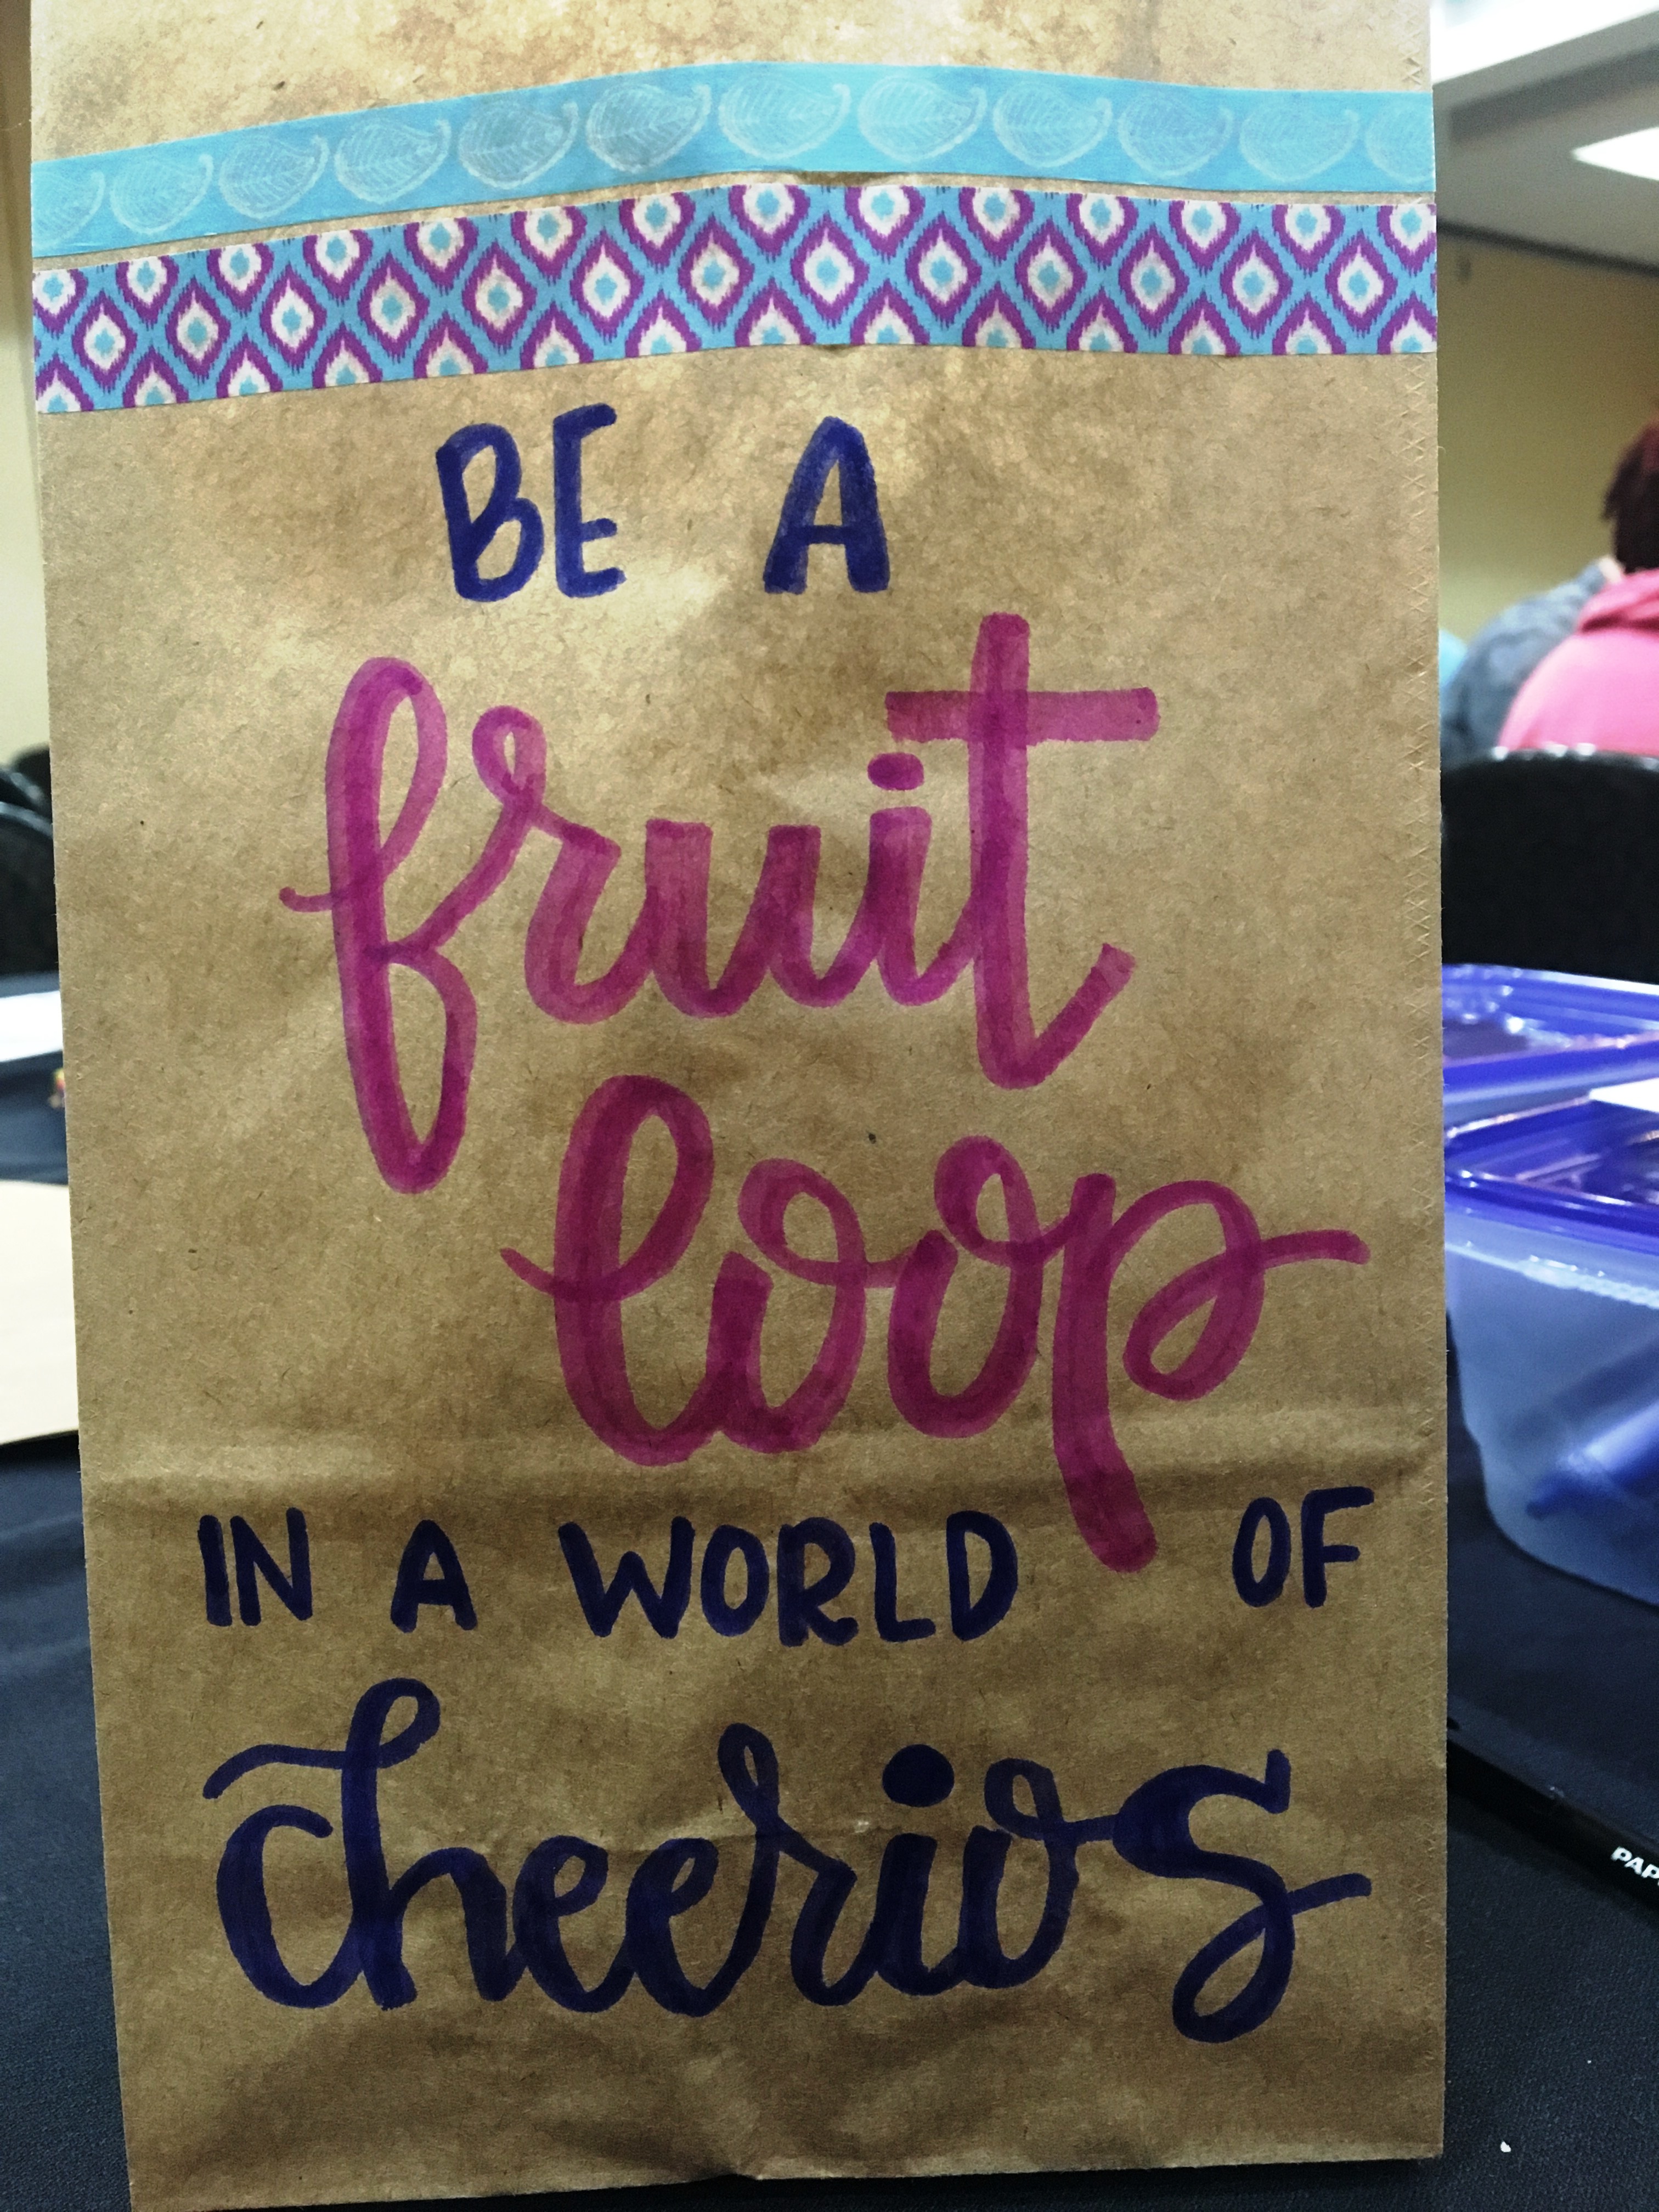 BE A
fruit
loop
IN A WORLD OF
cheerios
PAP